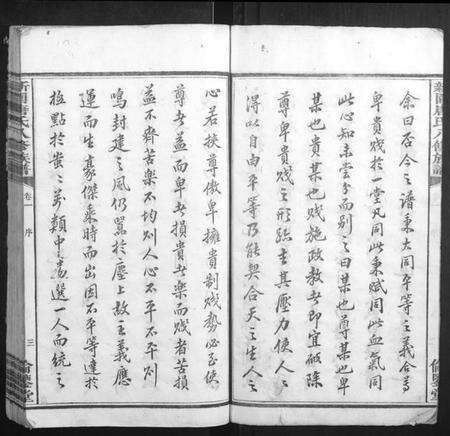 余曰否今之譜秉大同平等主義合尊
卑貴賤於一堂凡同此秉賦同此血氣同
此心知未嘗分而別之曰某也尊某也卑
某也貴某也賤施政教者即宜破除
尊卑貴賤之形跡去其壓力使人人
得以自由平等乃能契合天之生人之
心若挾尊傲卑擁貴制賤勢必至使
尊者益而卑者損貴者樂而賤者苦損
益不齊苦樂不均則人心不平不平則
鳴封建之風仍囂於塵上故主義應
運而生豪傑乘時而出因不平等達於
極點於萬類中選一人而統之
卷一 序
三